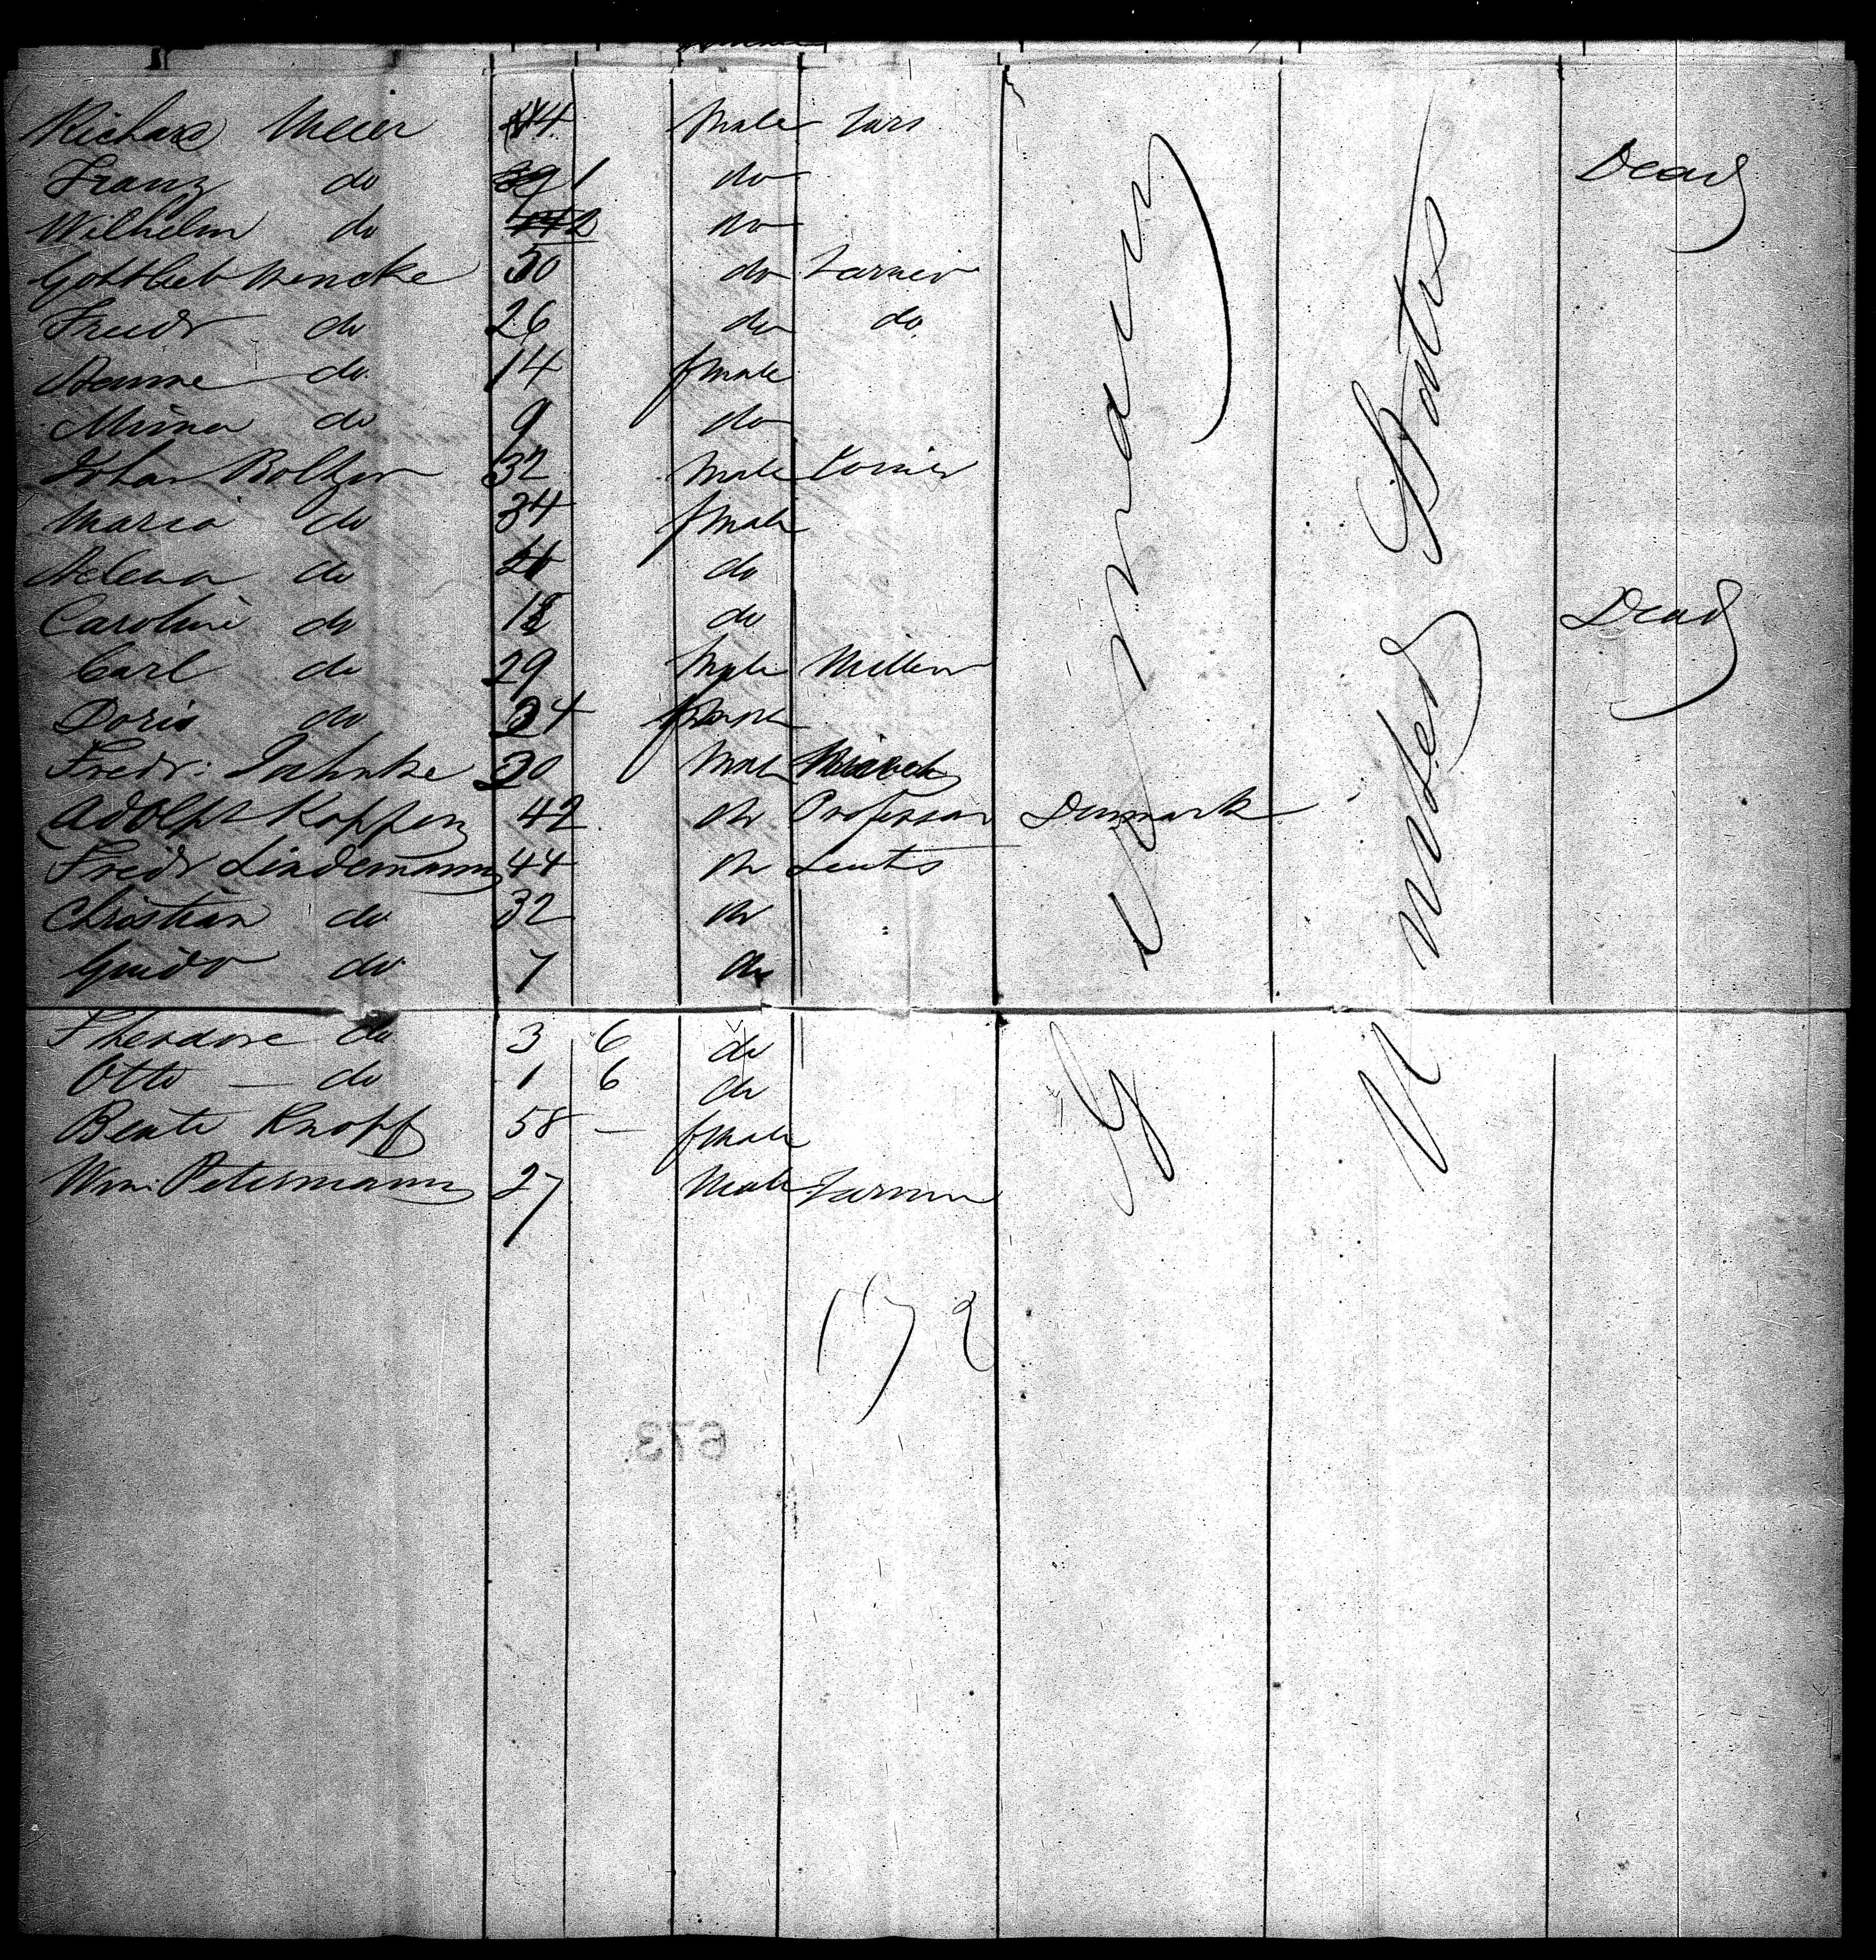 Richard Meier 4 Male
Franz do 1 do Dead
Wilhelm do do
Gottlieb Wencke 50 do Farmer
Friedr do 26 do do
Hanne do 14 female
Minna do 9 do
Johan Boltzen 32 Male
Maria do 34 female
Helena do do
Caroline do 18 do Dead
Carl do 29 Male Miller
Doris do 24 female
Fredr: Jahnke 30 Male
Adolph Koppen 42 do Professor Denmark
Friedr Lindemann 44 do
Christian do 32 do
Guido do 7 do
Theodore do 3 6 do
Otto — do 1 6 do
Beate Knopf 58 — female
Wm: Petermann 27 Male Farmer
Germany
United States
172
673